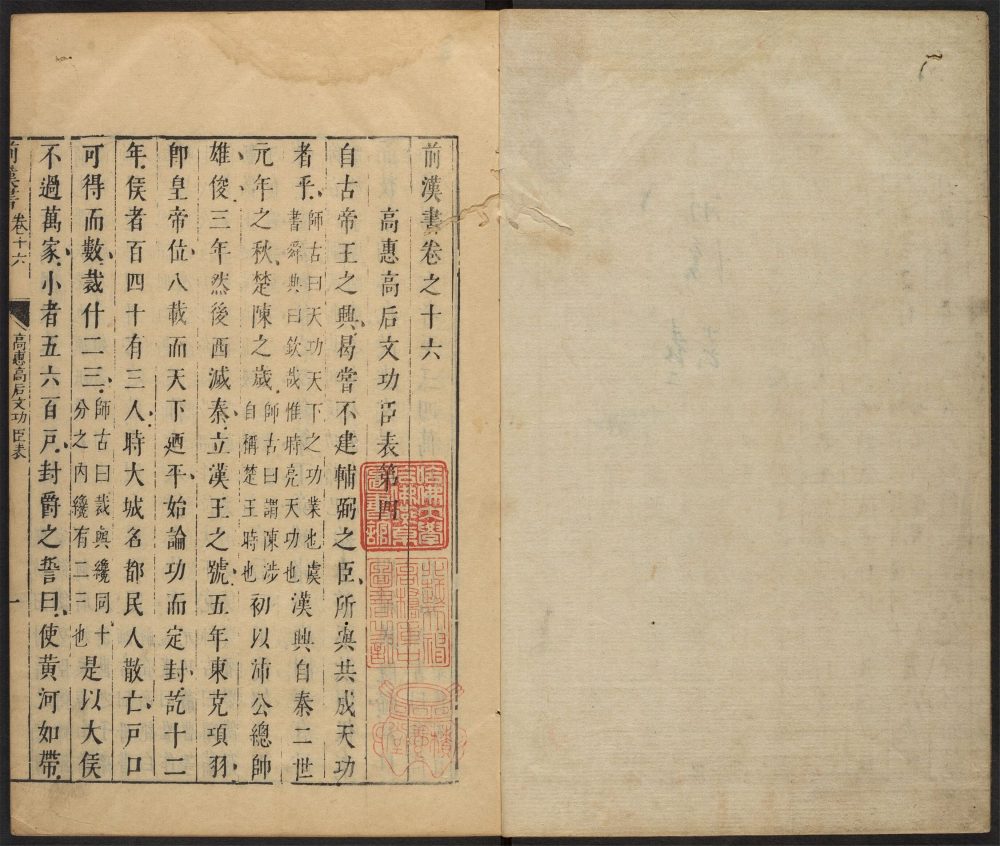 前漢書卷之十六
高惠高后文功臣表第四
自古帝王之興曷嘗不建輔弼之臣所與共成天功
者乎師古曰天功天下之功業也虞書舜典曰欽哉惟時亮天功也漢興自秦二世
元年之秋楚陳之歲師古曰謂陳涉自稱楚王時也初以沛公總帥
雄俊三年然後西滅秦立漢王之號五年東克項羽
卽皇帝位八載而天下迺平始論功而定封訖十二
年侯者百四十有三人時大城名都民人散亡戶口
可得而數裁什二三師古曰裁與纔同十分之內纔有二三也是以大侯
不過萬家小者五六百戶封爵之誓曰使黃河如帶
前漢書 卷十六 高惠高后文功臣表 一
哈佛大學漢和圖書館